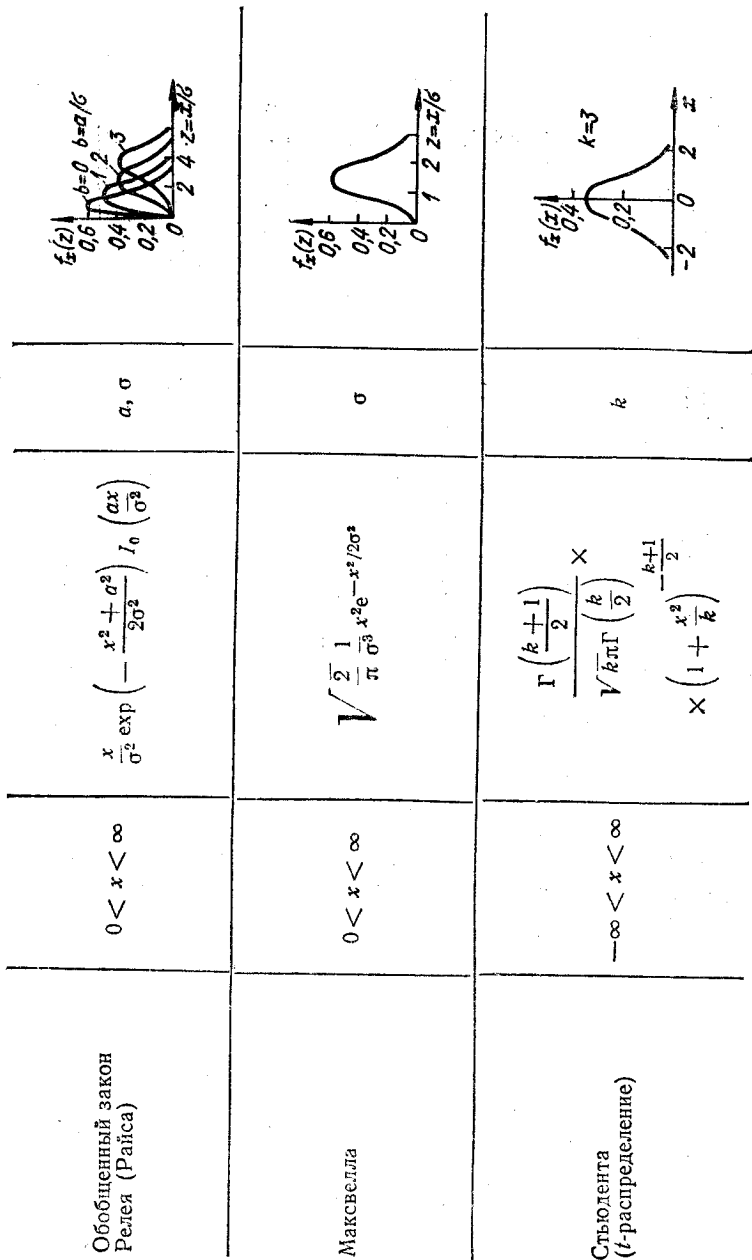 Обобщенный закон
Релея (Райса)
0 < x < ∞
x/σ² exp (− (x² + a²)/2σ²) I₀ (ax/σ²)
a, σ
fₓ(z)
b=0 b=a/σ
0,6
0,4
0,2
0
1 2 3
2 4 z=x/σ
Максвелла
0 < x < ∞
√(2/π) 1/σ³ x²e^(−x²/2σ²)
σ
fₓ(z)
0,6
0,4
0,2
0
1 2 z=x/σ
Стьюдента
(t-распределение)
−∞ < x < ∞
Γ ((k + 1)/2) / (√kπ Γ (k/2)) ×
× (1 + x²/k)^(−(k+1)/2)
k
fₓ(x)
0,4
0,2
k=3
−2 0 2 x